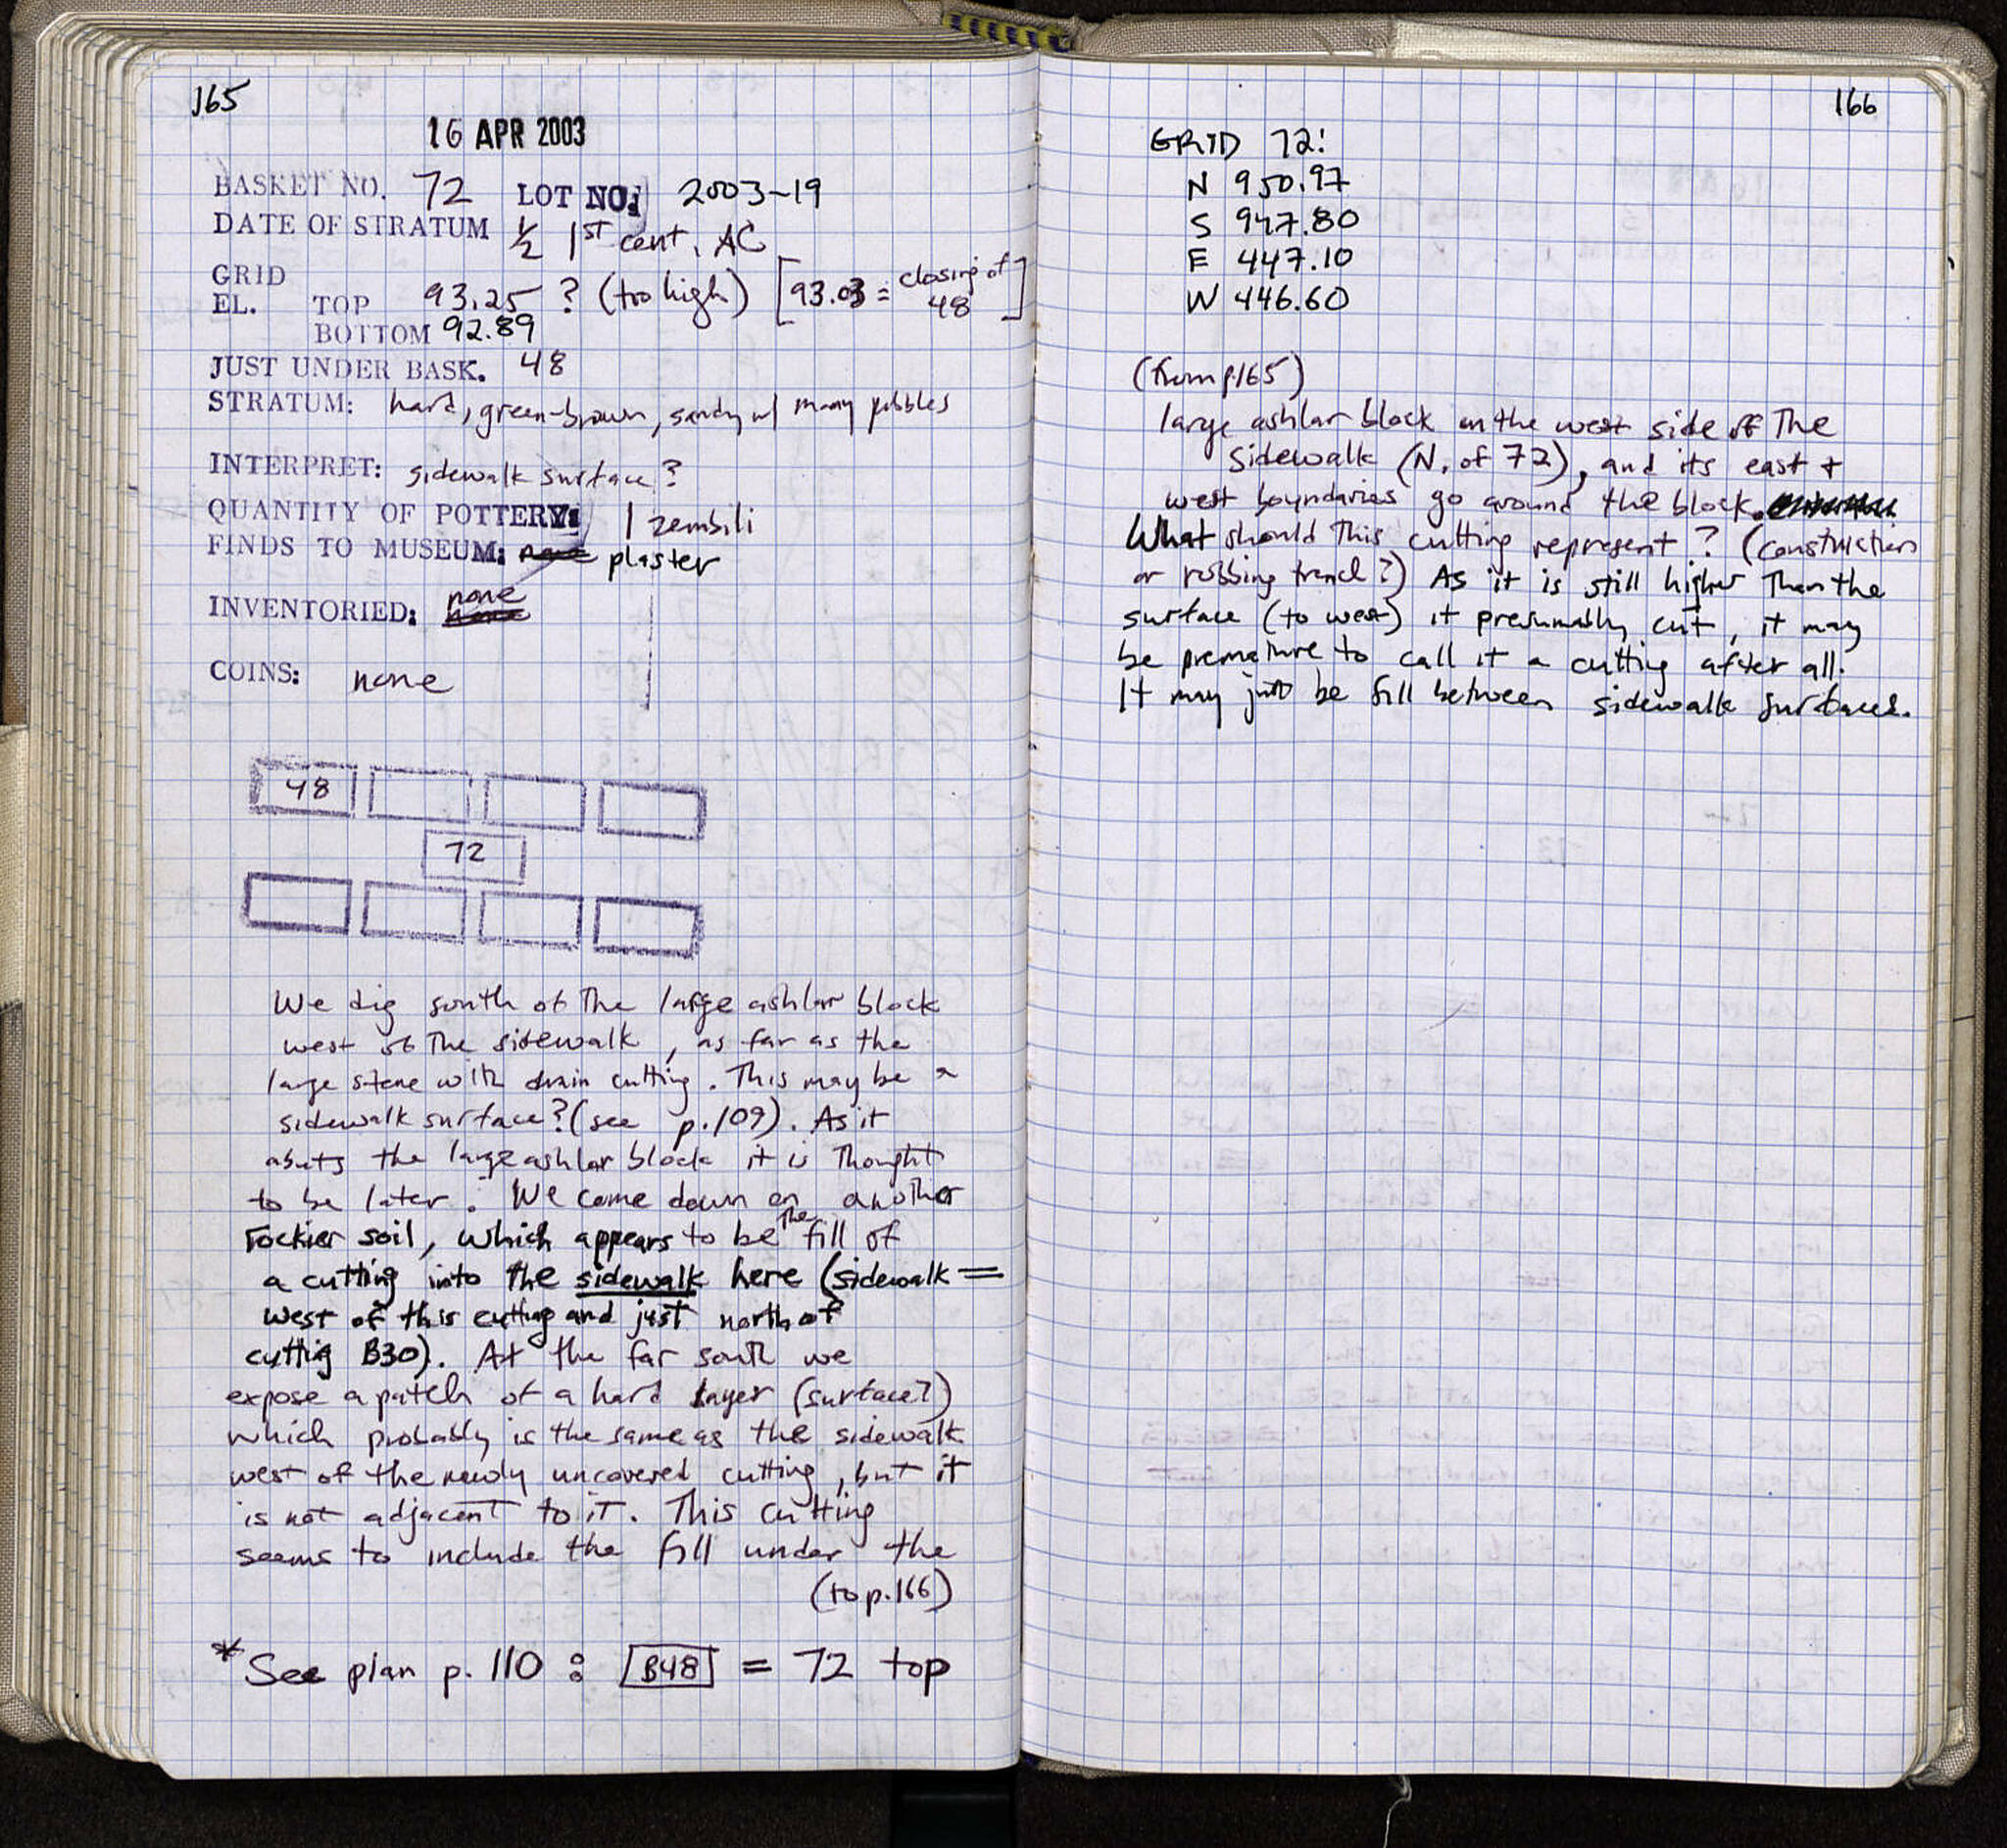 165
16 APR 2003
BASKET NO. 72 LOT NO. 2003-19
DATE OF STRATUM ½ 1st cent. AC
GRID
EL. TOP 93.25 ? (too high) [93.03 = closing of 48]
BOTTOM 92.89
JUST UNDER BASK. 48
STRATUM: hard, green-brown, sandy w/ many pebbles
INTERPRET: sidewalk surface?
QUANTITY OF POTTERY: 1 zembili
FINDS TO MUSEUM: none plaster
INVENTORIED: none
none
COINS: none
48
72
We dig south of the large ashlar block
west of the sidewalk, as far as the
large stone with drain cutting. This may be a
sidewalk surface? (see p.109). As it
abuts the large ashlar block it is thought
to be later. We come down on another
rockier soil, which appears to be the fill of
a cutting into the sidewalk here (sidewalk =
west of this cutting and just north of
cuttig B30). At the far south we
expose a patch of a hard layer (surface?)
which probably is the same as the sidewalk
west of the newly uncovered cutting, but it
is not adjacent to it. This cutting
seems to include the fill under the
(to p.166)
*See plan p. 110 : B48 = 72 top
166
GRID 72:
N 950.97
S 947.80
E 447.10
W 446.60
(from p.165)
large ashlar block on the west side of the
sidewalk (N. of 72), and its east +
west boundaries go around the block.
What should this cutting represent? (construction
or robbing trench?) As it is still higher than the
surface (to west) it presumably cut, it may
be premature to call it a cutting after all.
It may just be fill between sidewalk surfaces.